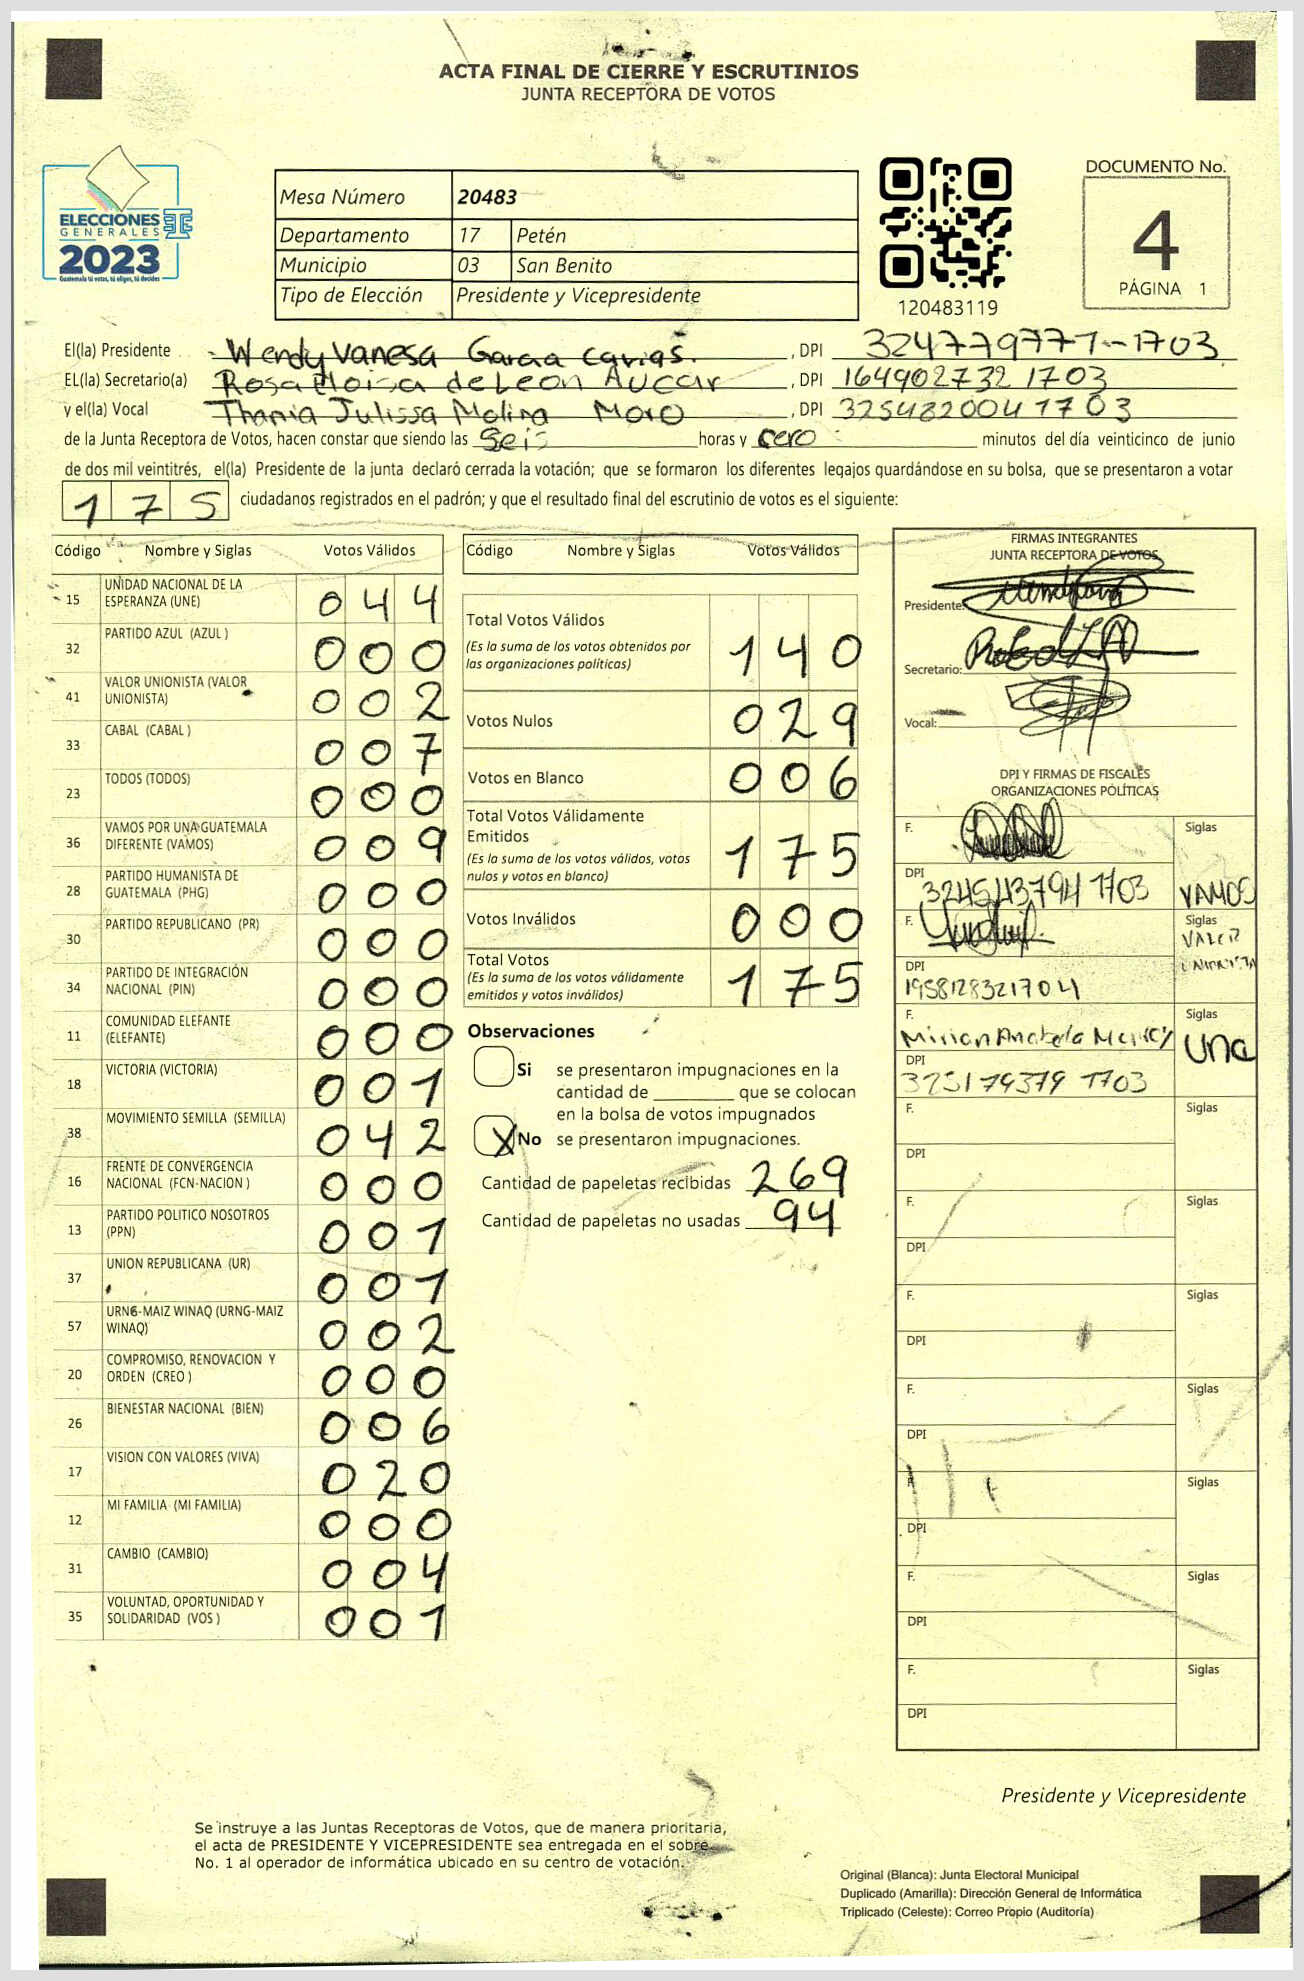 ACTA FINAL DE CIERRE Y ESCRUTINIOS
JUNTA RECEPTORA DE VOTOS
ELECCIONES
GENERALES
2023
Guatemala tú votas, tú eliges, tú decides
Mesa Número 20483
Departamento 17 Petén
Municipio 03 San Benito
Tipo de Elección Presidente y Vicepresidente
120483119
DOCUMENTO No.
4
PÁGINA 1
El(la) Presidente Wendy Vanesa Garcia Carias. , DPI 324779771-1703
EL(la) Secretario(a) Rosa Eloisa de Leon Auccar , DPI 164902732 1703
y el(la) Vocal Thania Julissa Molina Moro , DPI 325482004 1703
de la Junta Receptora de Votos, hacen constar que siendo las Seis horas y cero minutos del día veinticinco de junio
de dos mil veintitrés, el(la) Presidente de la junta declaró cerrada la votación; que se formaron los diferentes legajos guardándose en su bolsa, que se presentaron a votar
175 ciudadanos registrados en el padrón; y que el resultado final del escrutinio de votos es el siguiente:
Código Nombre y Siglas Votos Válidos
15 UNIDAD NACIONAL DE LA ESPERANZA (UNE) 044
32 PARTIDO AZUL (AZUL ) 000
41 VALOR UNIONISTA (VALOR UNIONISTA) 002
33 CABAL (CABAL ) 007
23 TODOS (TODOS) 000
36 VAMOS POR UNA GUATEMALA DIFERENTE (VAMOS) 009
28 PARTIDO HUMANISTA DE GUATEMALA (PHG) 000
30 PARTIDO REPUBLICANO (PR) 000
34 PARTIDO DE INTEGRACIÓN NACIONAL (PIN) 000
11 COMUNIDAD ELEFANTE (ELEFANTE) 000
18 VICTORIA (VICTORIA) 001
38 MOVIMIENTO SEMILLA (SEMILLA) 042
16 FRENTE DE CONVERGENCIA NACIONAL (FCN-NACION ) 000
13 PARTIDO POLITICO NOSOTROS (PPN) 001
37 UNION REPUBLICANA (UR) 001
57 URNG-MAIZ WINAQ (URNG-MAIZ WINAQ) 002
20 COMPROMISO, RENOVACION Y ORDEN (CREO ) 000
26 BIENESTAR NACIONAL (BIEN) 006
17 VISION CON VALORES (VIVA) 020
12 MI FAMILIA (MI FAMILIA) 000
31 CAMBIO (CAMBIO) 004
35 VOLUNTAD, OPORTUNIDAD Y SOLIDARIDAD (VOS ) 001
Código Nombre y Siglas Votos Válidos
Total Votos Válidos
(Es la suma de los votos obtenidos por
las organizaciones políticas) 140
Votos Nulos 029
Votos en Blanco 006
Total Votos Válidamente
Emitidos
(Es la suma de los votos válidos, votos
nulos y votos en blanco) 175
Votos Inválidos 000
Total Votos
(Es la suma de los votos válidamente
emitidos y votos inválidos) 175
Observaciones
Si se presentaron impugnaciones en la
cantidad de ________ que se colocan
en la bolsa de votos impugnados
X No se presentaron impugnaciones.
Cantidad de papeletas recibidas 269
Cantidad de papeletas no usadas 94
FIRMAS INTEGRANTES
JUNTA RECEPTORA DE VOTOS
Presidente:
Secretario:
Vocal:
DPI Y FIRMAS DE FISCALES
ORGANIZACIONES POLÍTICAS
F. Siglas
DPI
324543794 1703 VAMOS
F. Siglas
VALOR
UNIONISTA
DPI
1958128321704
F. Siglas
Mirion Anabela
Una
DPI
325179379 1703
F. Siglas
DPI
F. Siglas
DPI
F. Siglas
DPI
F. Siglas
DPI
F. Siglas
DPI
F. Siglas
DPI
F. Siglas
DPI
Presidente y Vicepresidente
Se instruye a las Juntas Receptoras de Votos, que de manera prioritaria,
el acta de PRESIDENTE Y VICEPRESIDENTE sea entregada en el sobre
No. 1 al operador de informática ubicado en su centro de votación.
Original (Blanca): Junta Electoral Municipal
Duplicado (Amarilla): Dirección General de Informática
Triplicado (Celeste): Correo Propio (Auditoría)